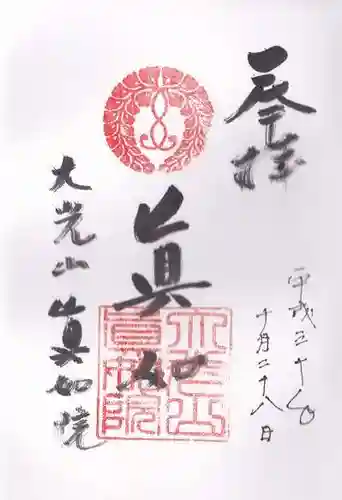 奉拝
平成三十年
十月二十八日
真如
大光山
真如院
大光山真如境